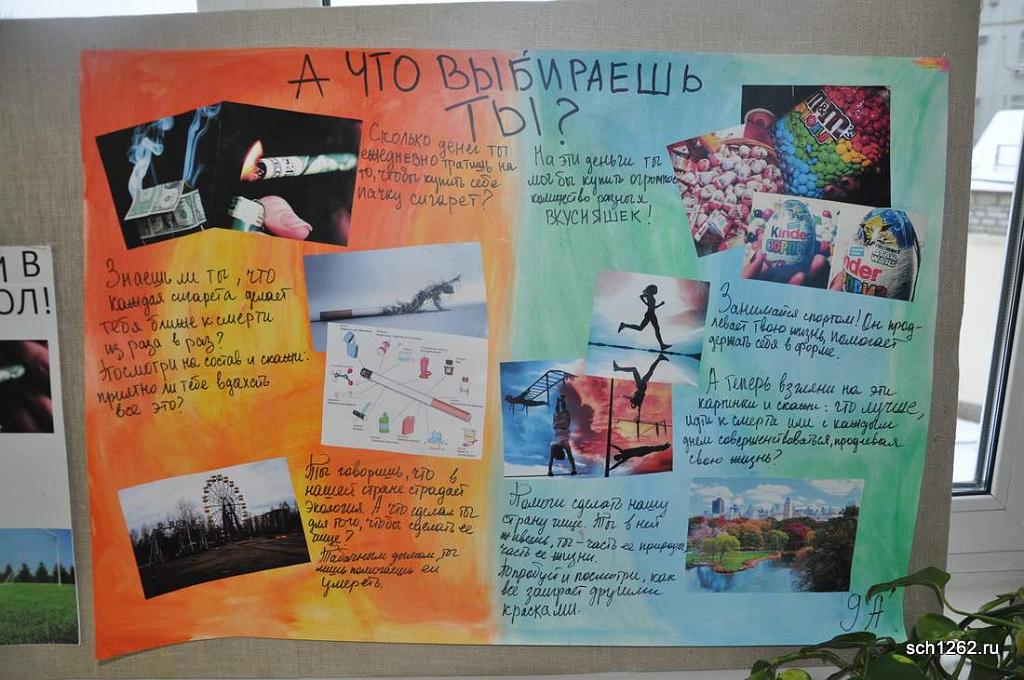 А ЧТО ВЫБИРАЕШЬ
ТЫ?
Сколько денег ты
ежедневно тратишь на
то, чтобы купить себе
пачку сигарет?
Знаешь ли ты, что
каждая сигарета делает
тебя ближе к смерти
из раза в раз?
Посмотри на состав и скажи:
приятно ли тебе вдыхать
всё это?
Ты говоришь, что в
нашей стране страдает
экология. А что сделал ты
для того, чтобы сделать её
чище?
Табачным дымом ты
лишь помогаешь ей
умереть.
На эти деньги ты
мог бы купить огромное
количество разных
ВКУСНЯШЕК!
m&m's
Kinder
СЮРПРИЗ
nder
Занимайся спортом! Он прод-
левает твою жизнь, помогает
держать себя в форме.
А теперь взгляни на эти
картинки и скажи: что лучше,
идти к смерти или с каждым
днем совершенствоваться, продлевая
свою жизнь?
Помоги сделать нашу
страну чище. Ты в ней
живешь, ты - часть её природы,
часть её жизни.
Попробуй и посмотри, как
всё заиграет другими
красками.
9 "А"
И В
ОЛ!
sch1262.ru